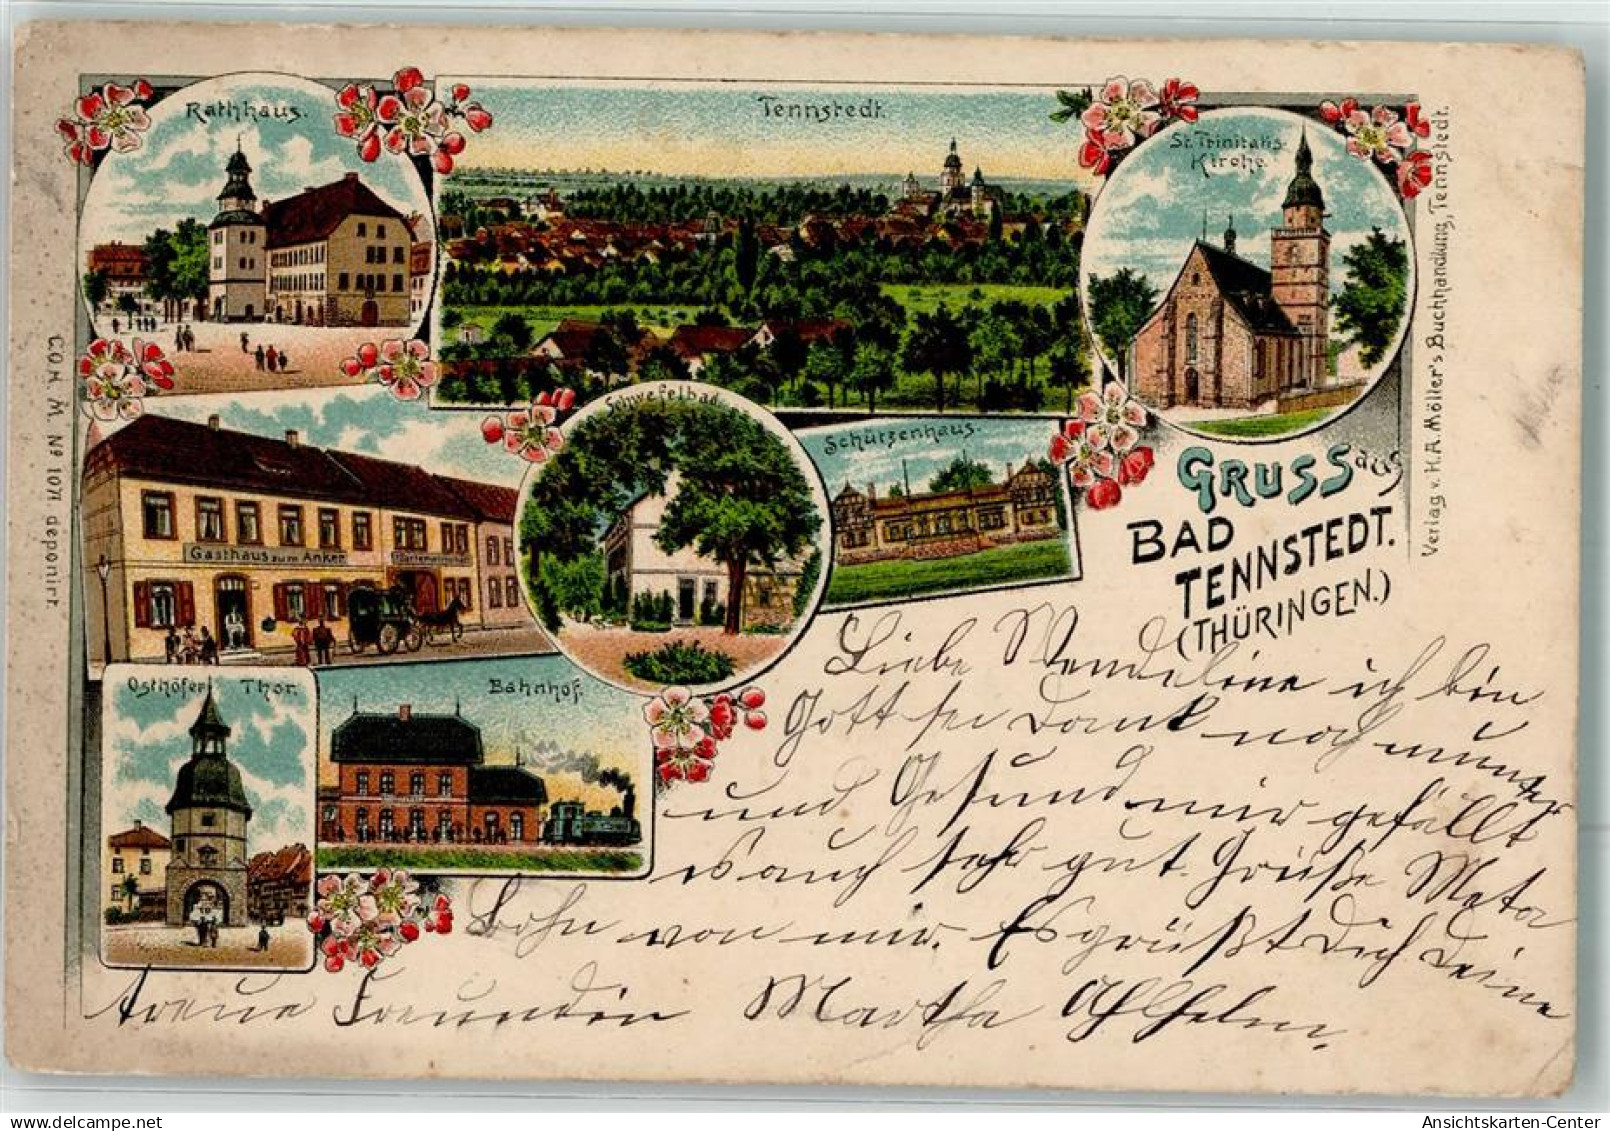 Rathhaus.
Tennstedt.
St. Trinitatis-
Kirche.
Schwefelbad
Schützenhaus.
Gasthaus zum Anker
Osthöfer Thor.
Bahnhof.
GRUSS aus
BAD
TENNSTEDT.
(THÜRINGEN.)
Verlag v. H.A. Möller's Buchhandlung, Tennstedt.
COM M. Nº 1071 deponirt.
Liebe Wendeline ich bin
Gott sei Dank noch munter
und Gesund mir gefällt
es auch sehr gut. Grüße
von mir. Es grüßt Dich Deine
treue Freundin Martha
Ansichtskarten-Center